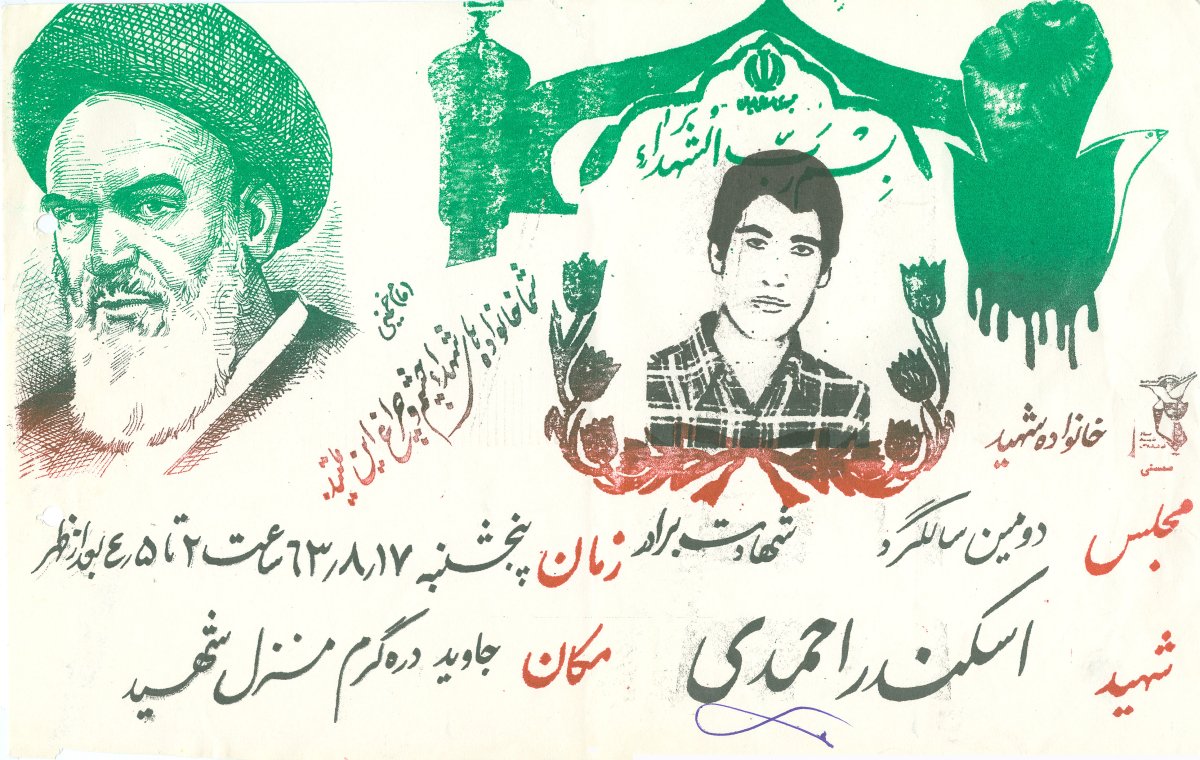 جمهوری اسلامی ایران
بسم رب الشهداء
امام خمینی
شما خانواده های شهداء چشم و چراغ این ملتید
خانواده شهید
مجلس دومین سالگرد شهادت برادر
شهید اسکندر احمدی
زمان پنجشنبه ۶۳٫۸٫۱۷ ساعت ۲ تا ۴٫۵ بعد از ظهر
مکان جاوید دره گرم منزل شهید